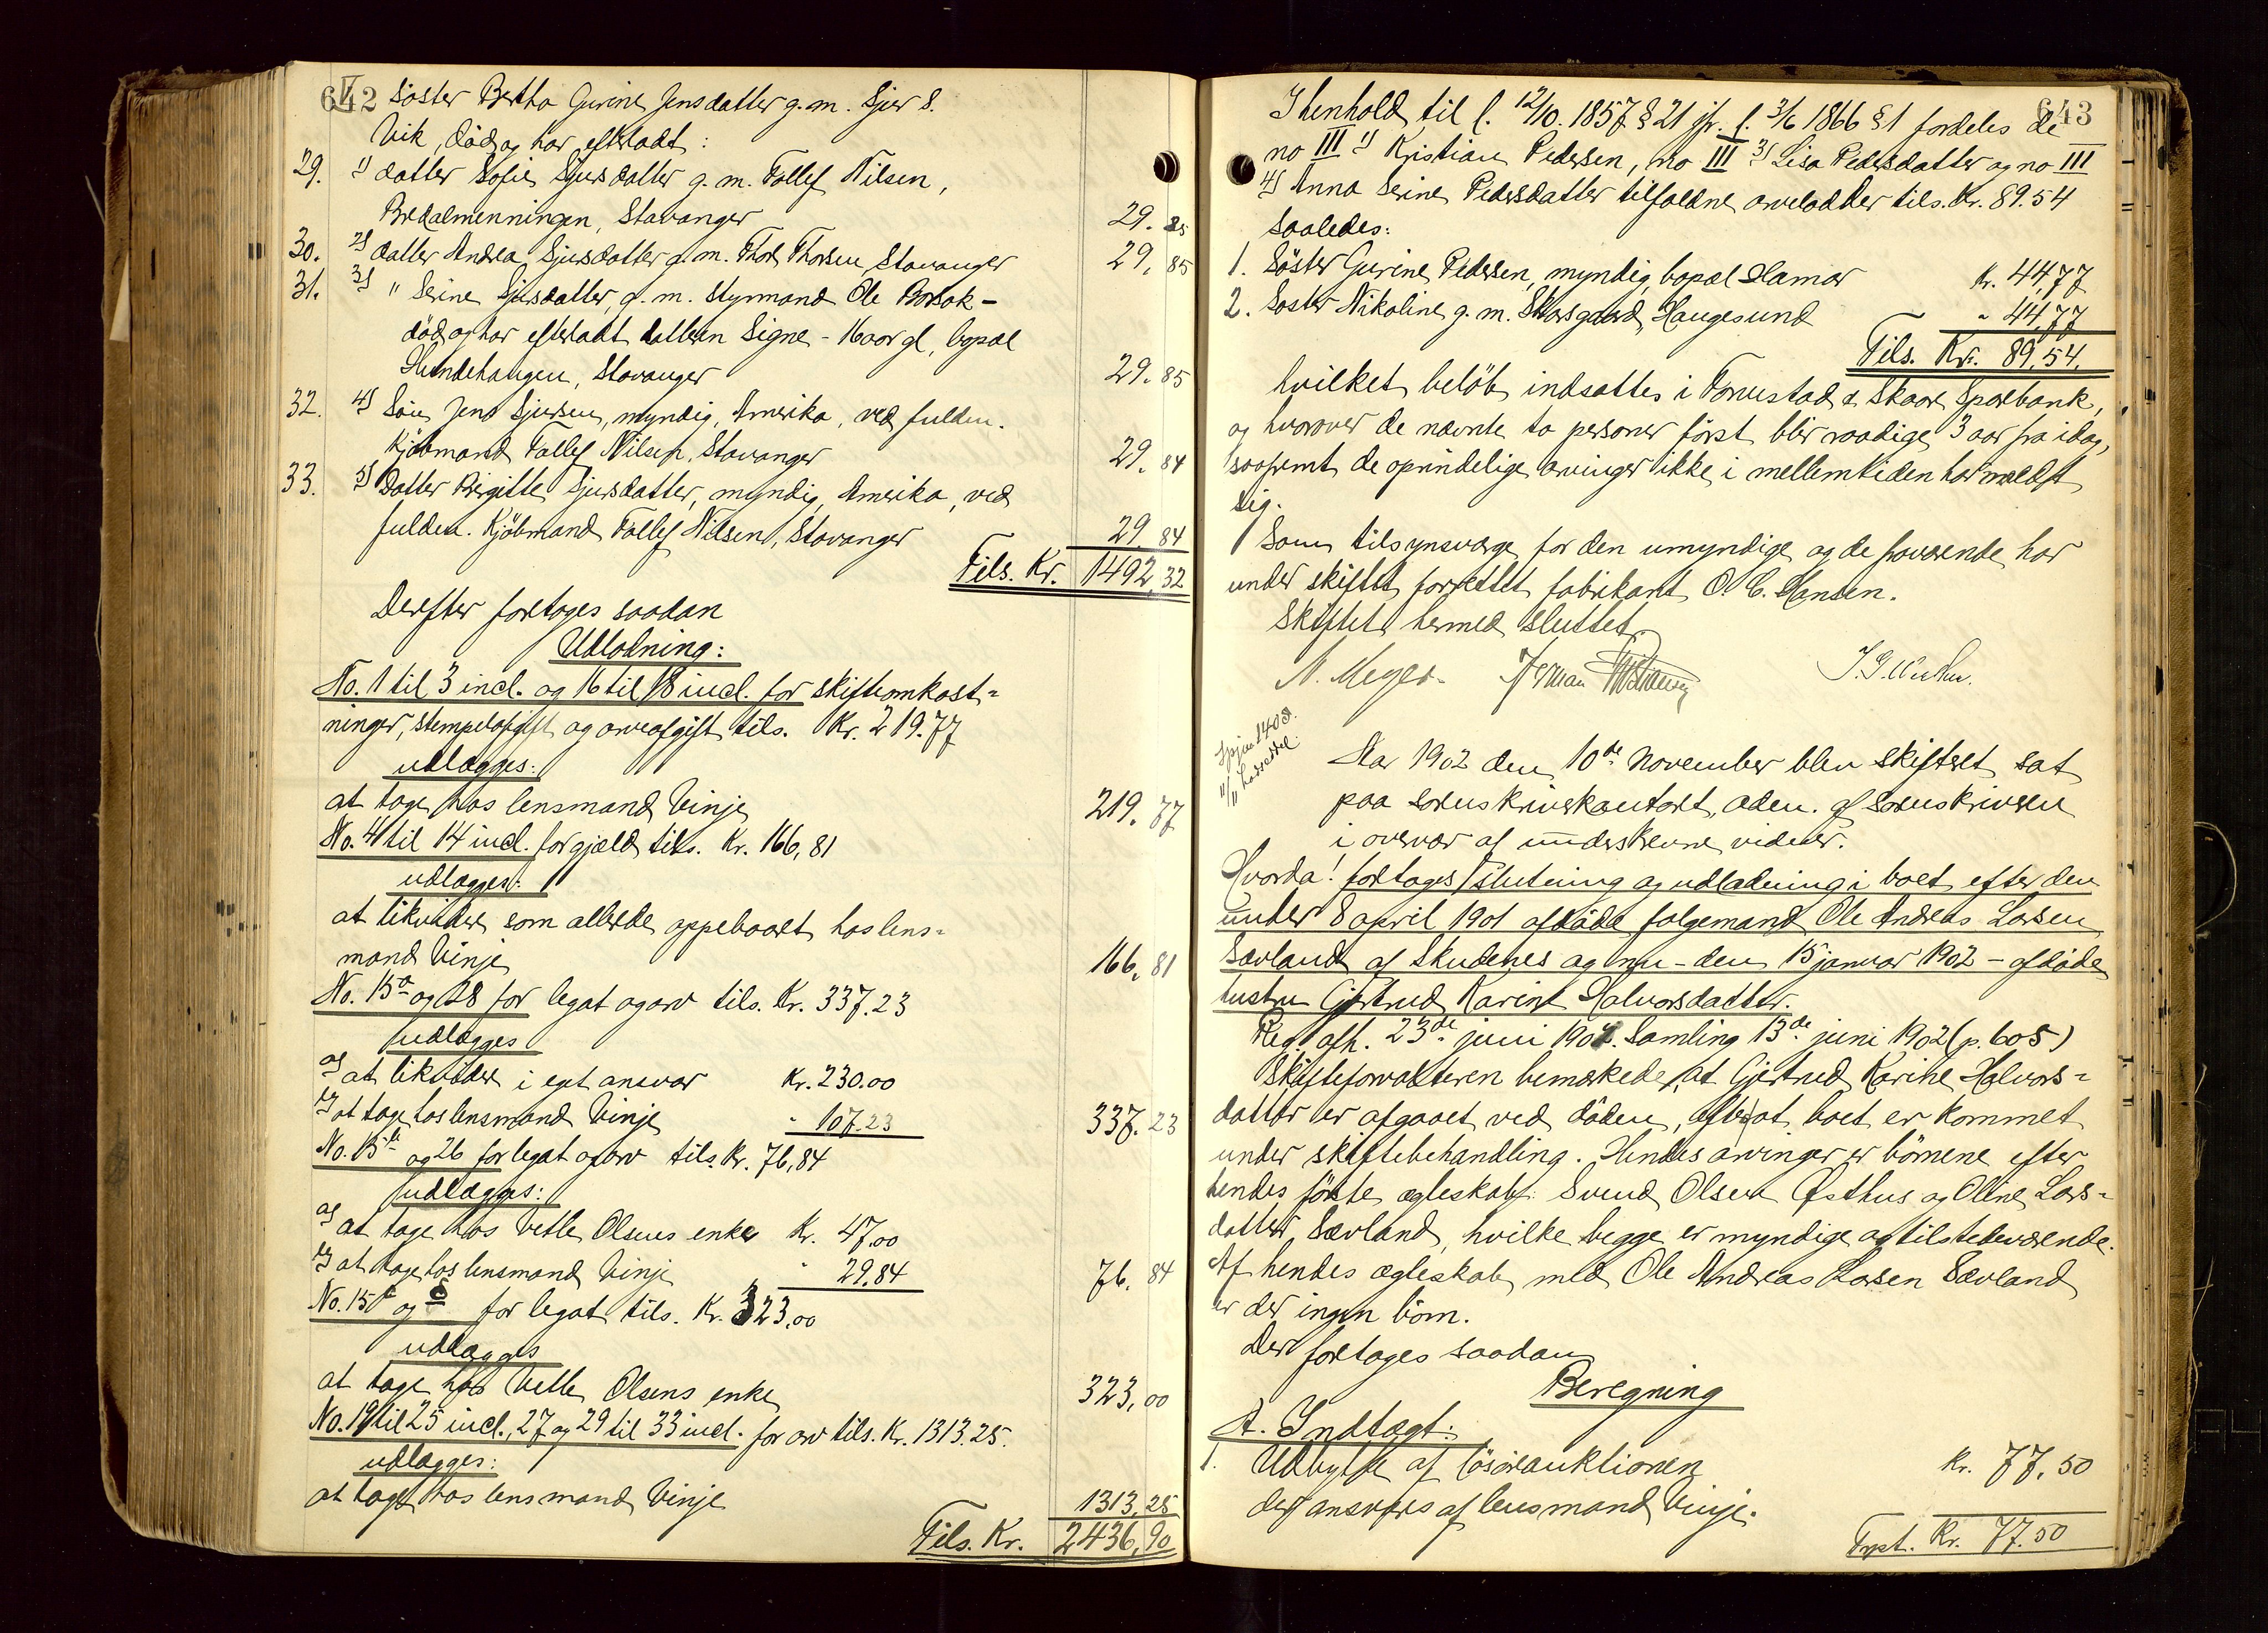 642
V Søster Bertha Gurine Jensdatter g. m. Sjur S.
Vik, död og har efterladt:
29. 1) datter Sofie Sjursdatter g. m. Tollef Nilsen,
Bredalmenningen, Stavanger 29. 85
30. 2) datter Andrea Sjursdatter g. m. Thor Thorsen, Stavanger 29, 85
31. 3) " Serine Sjursdatter, g. m. Styrmand Ole
död og har efterladt datteren Signe - 16 aar gl, bopæl
, Stavanger 29. 85
32. 4) Sön Jens Sjursen, myndig, Amerika, ved fuldm.
Kjöbmand Tollef Nilsen, Stavanger 29. 84
33. 5) Datter Birgitte Sjursdatter, myndig, Amerika, ved
fuldm. Kjöbmand Tollef Nilsen, Stavanger 29. 84
Tils. Kr. 1492,32
Derefter foretages saadan
Udlodning:
No. 1 til 3 incl. og 16 til 18 incl. for skifteomkost=
ninger, stempelafgift og arveafgift tils. Kr. 219.77
udlægges:
at tage hos lensmand Vinje 219. 77
No. 4 til 14 incl. for gjæld tils. Kr. 166,81
udlægges:
at likvidere som allerede oppebaaret hos lens=
mand Vinje 166, 81
No. 15a og 28 for legat og arv tils. Kr. 337.23
udlægges
a) at likvidere i eget ansvar Kr. 230.00
b) at tage hos lensmand Vinje " 107.23 337. 23
No. 15b og 26 for legat og arv tils. Kr. 76,84
udlægges:
a) at tage hos Vetle Olsens enke Kr. 47.00
b) at tage hos lensmand Vinje " 29.84 76. 84
No. 15 og for legat tils. Kr. 323,00
udlægges
at tage hos Vetle Olsens enke 323,00
No. 19 til 25 incl., 27 og 29 til 33 incl. for arv tils. Kr. 1313.25.
udlægges:
at tage hos lensmand Vinje 1313,25
Tils. Kr. 2436,90
643
I henhold til l. 12/10. 1857 § 21 jfr. l. 3/6 1866 § 1 fordeles de
no III 1) Kristian Pedersen, no III 3) Lisa Pedersdatter og no III
4) Anna Serine Pedersdatter tilfaldne arvelodder tils. Kr. 89.54
saaledes:
1. Söster Gurine Pedersen, myndig, bopæl Hamar Kr. 44,77
2. Søster Nikoline g. m. Skarsgaard, Haugesund " 44,77
Tils. Kr. 89,54.
hvilket beløb indsættes i Torvestad & Skaare Sparebank,
og hvorover de nævnte to personer først blir raadige 3 aar fra idag,
saafremt de oprindelige arvinger ikke i mellemtiden har meldt
sig.
Som tilsynsværge for den umyndige og de fraværende har
under skiftet forrettet fabrikant O. C. Hansen.
Skiftet hermed sluttet.
N. Meyer. Herman
Aar 1902 den 10de November blev skifteret sat
paa sorenskriverkontoret, adm. af sorenskriveren
i overvær af underskrevne vidner.
Hvorda! foretoges slutning og udlodning i boet efter den
under 8 april 1901 afdöde folgemand Ole Andreas Larsen
Sævland af Skudenes og nu - den 15 januar 1902 - afdöde
hustru Gjertrud Karine Halvorsdatter.
Reg. afh. 23de juni 1902. Samling 13de juni 1902 (p. 605)
Skifteforvalteren bemærkede, at Gjertrud Karine Halvors=
datter er afgaaet ved döden, efterat boet er kommet
under skiftebehandling. Hendes arvinger er börnene efter
hendes förste ægteskab: Svend Olsen Østhus og Oline Lars=
datter Sævland, hvilke begge er myndige og tilstedeværende.
Af hendes ægteskab med Ole Andreas Larsen Sævland
er der ingen börn.
Der foretages saadan
Beregning
A. Indtægt:
1. Udbytte af lösöreauktionen Kr. 77.50
der ansvares af lensmand Vinje.
Trpt. Kr. 77.50